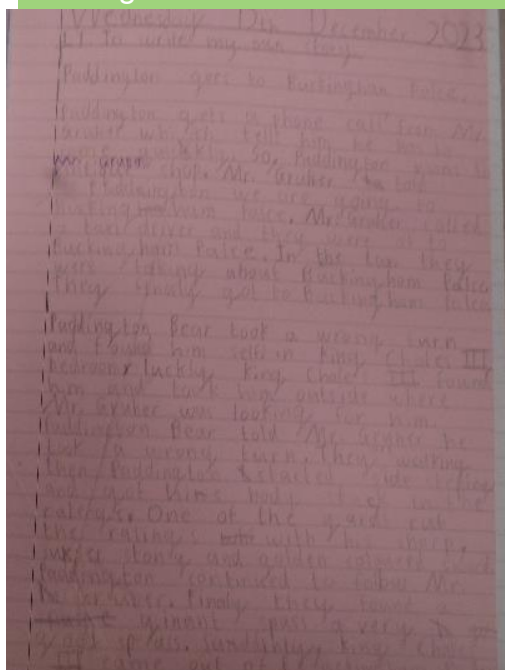 Wednesday 13th December 2023
L.I. To write my own story
Paddington goes to Buckingham Palce.
Paddington gets a phone call from Mr.
Gruber which tell him he has to
come quickly. So, Paddington goes to
Mr. Gruber shop. Mr. Gruber told
Paddington we are going to
Buckingham Palce. Mr. Gruber called
a taxi driver and they were of to
Buckingham Palce. In the taxi they
were talking about Buckingham Palce
They finaly got to Buckingham Palce
Paddington Bear took a wrong turn
and found him self in King Chales III
bedroom luckly King Chales III found
him and took him outside where
Mr. Gruber was looking for him.
Paddington Bear told Mr. Gruber he
took a wrong turn. They walking
then Paddington started side
and got hims body stuck in the
One of the gards cut
the ralings with his sharp,
stone and golden coloured
Paddington continued to follow Mr.
finaly they found a
pass a very
King Chales
III came out of